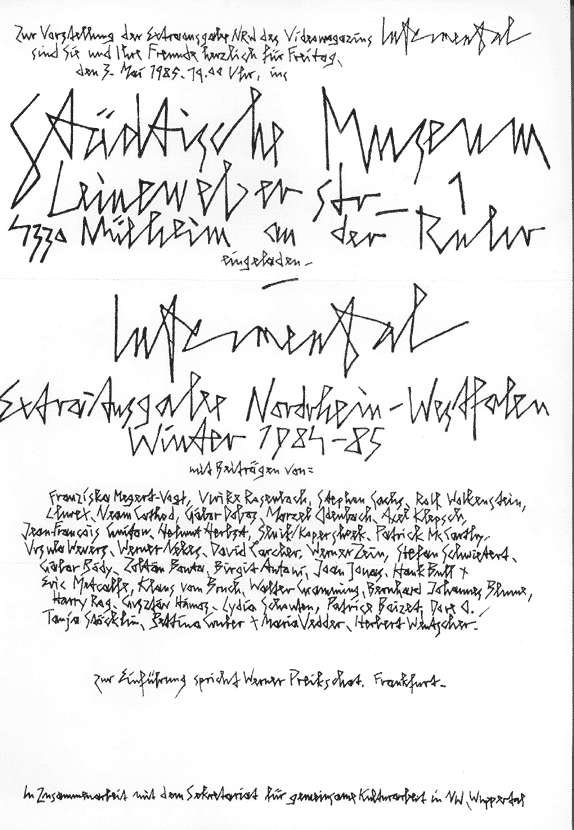 Zur Vorstellung der Extraausgabe NRW des Videomagazins Infermental
sind Sie und Ihre Freunde herzlich für Freitag,
den 3. Mai 1985. 19.00 Uhr, ins
Städtische Museum
Leineweber str_ 1
4330 Mülheim an der Ruhr
eingeladen_
Infermental
Extra-Ausgabe Nordrhein-Westfalen
Winter 1984-85
mit Beiträgen von:
Franziska Megert-Vogt, Ulrike Rosenbach, Stephan Sachs, Rolf Wolkenstein,
Neam Cathod, Marcel Odenbach, Axel Klepsch
Jean-François Guiton, Helmut Herbst, Patrick McCarthy,
Ursula Wevers, Werner Nekes, David Larcher, Werner Zein, Stefan Schwietert,
Gábor Bódy, Zoltán Birgit Antoni, Joan Jonas, Hank Bull +
Eric Metcalfe, Klaus vom Bruch, Walter Gramming, Bernhard Johannes Blume,
Harry Rag, Gusztáv Hámos, Lydia Schouten, Dave
Tanja Stöcklin, Bettina Gruber + Maria Vedder, Herbert Wentscher.
zur Einführung spricht Werner Preikschat. Frankfurt_
In Zusammenarbeit mit dem Sekretariat für gemeinsame Kulturarbeit in NW, Wuppertal